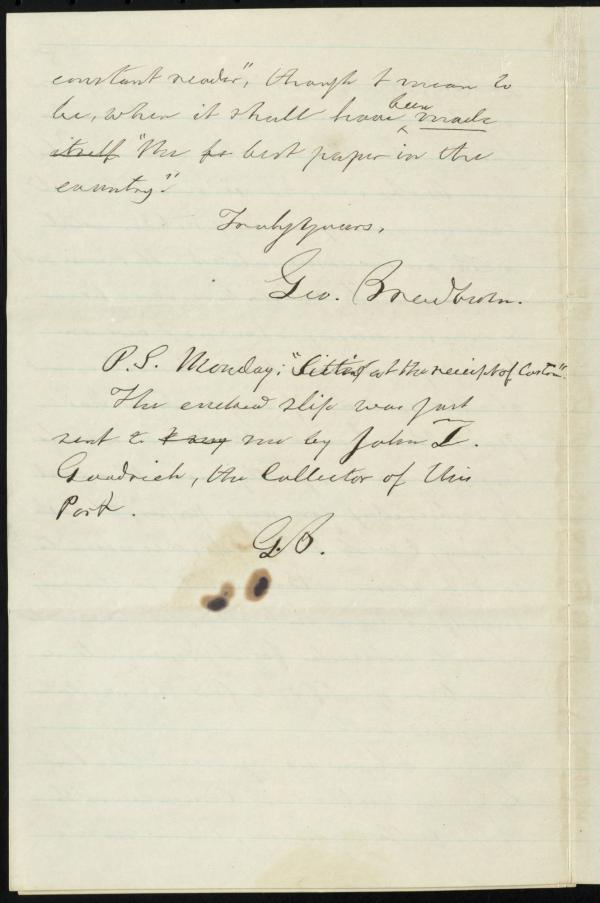 constant reader", though I mean to
be, when it shall have been made
itself "the fo best paper in the
country".
Truly yours,
Geo. Bradburn.
P.S. Monday; "Sitting at the receipt of Custom".
The enclosed slip was just
sent to me by John Z.
Goodrich, the Collector of this
Port.
G.B.